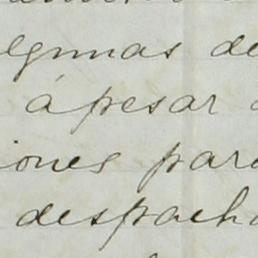 algunas de
á pesar
iones para
despacho